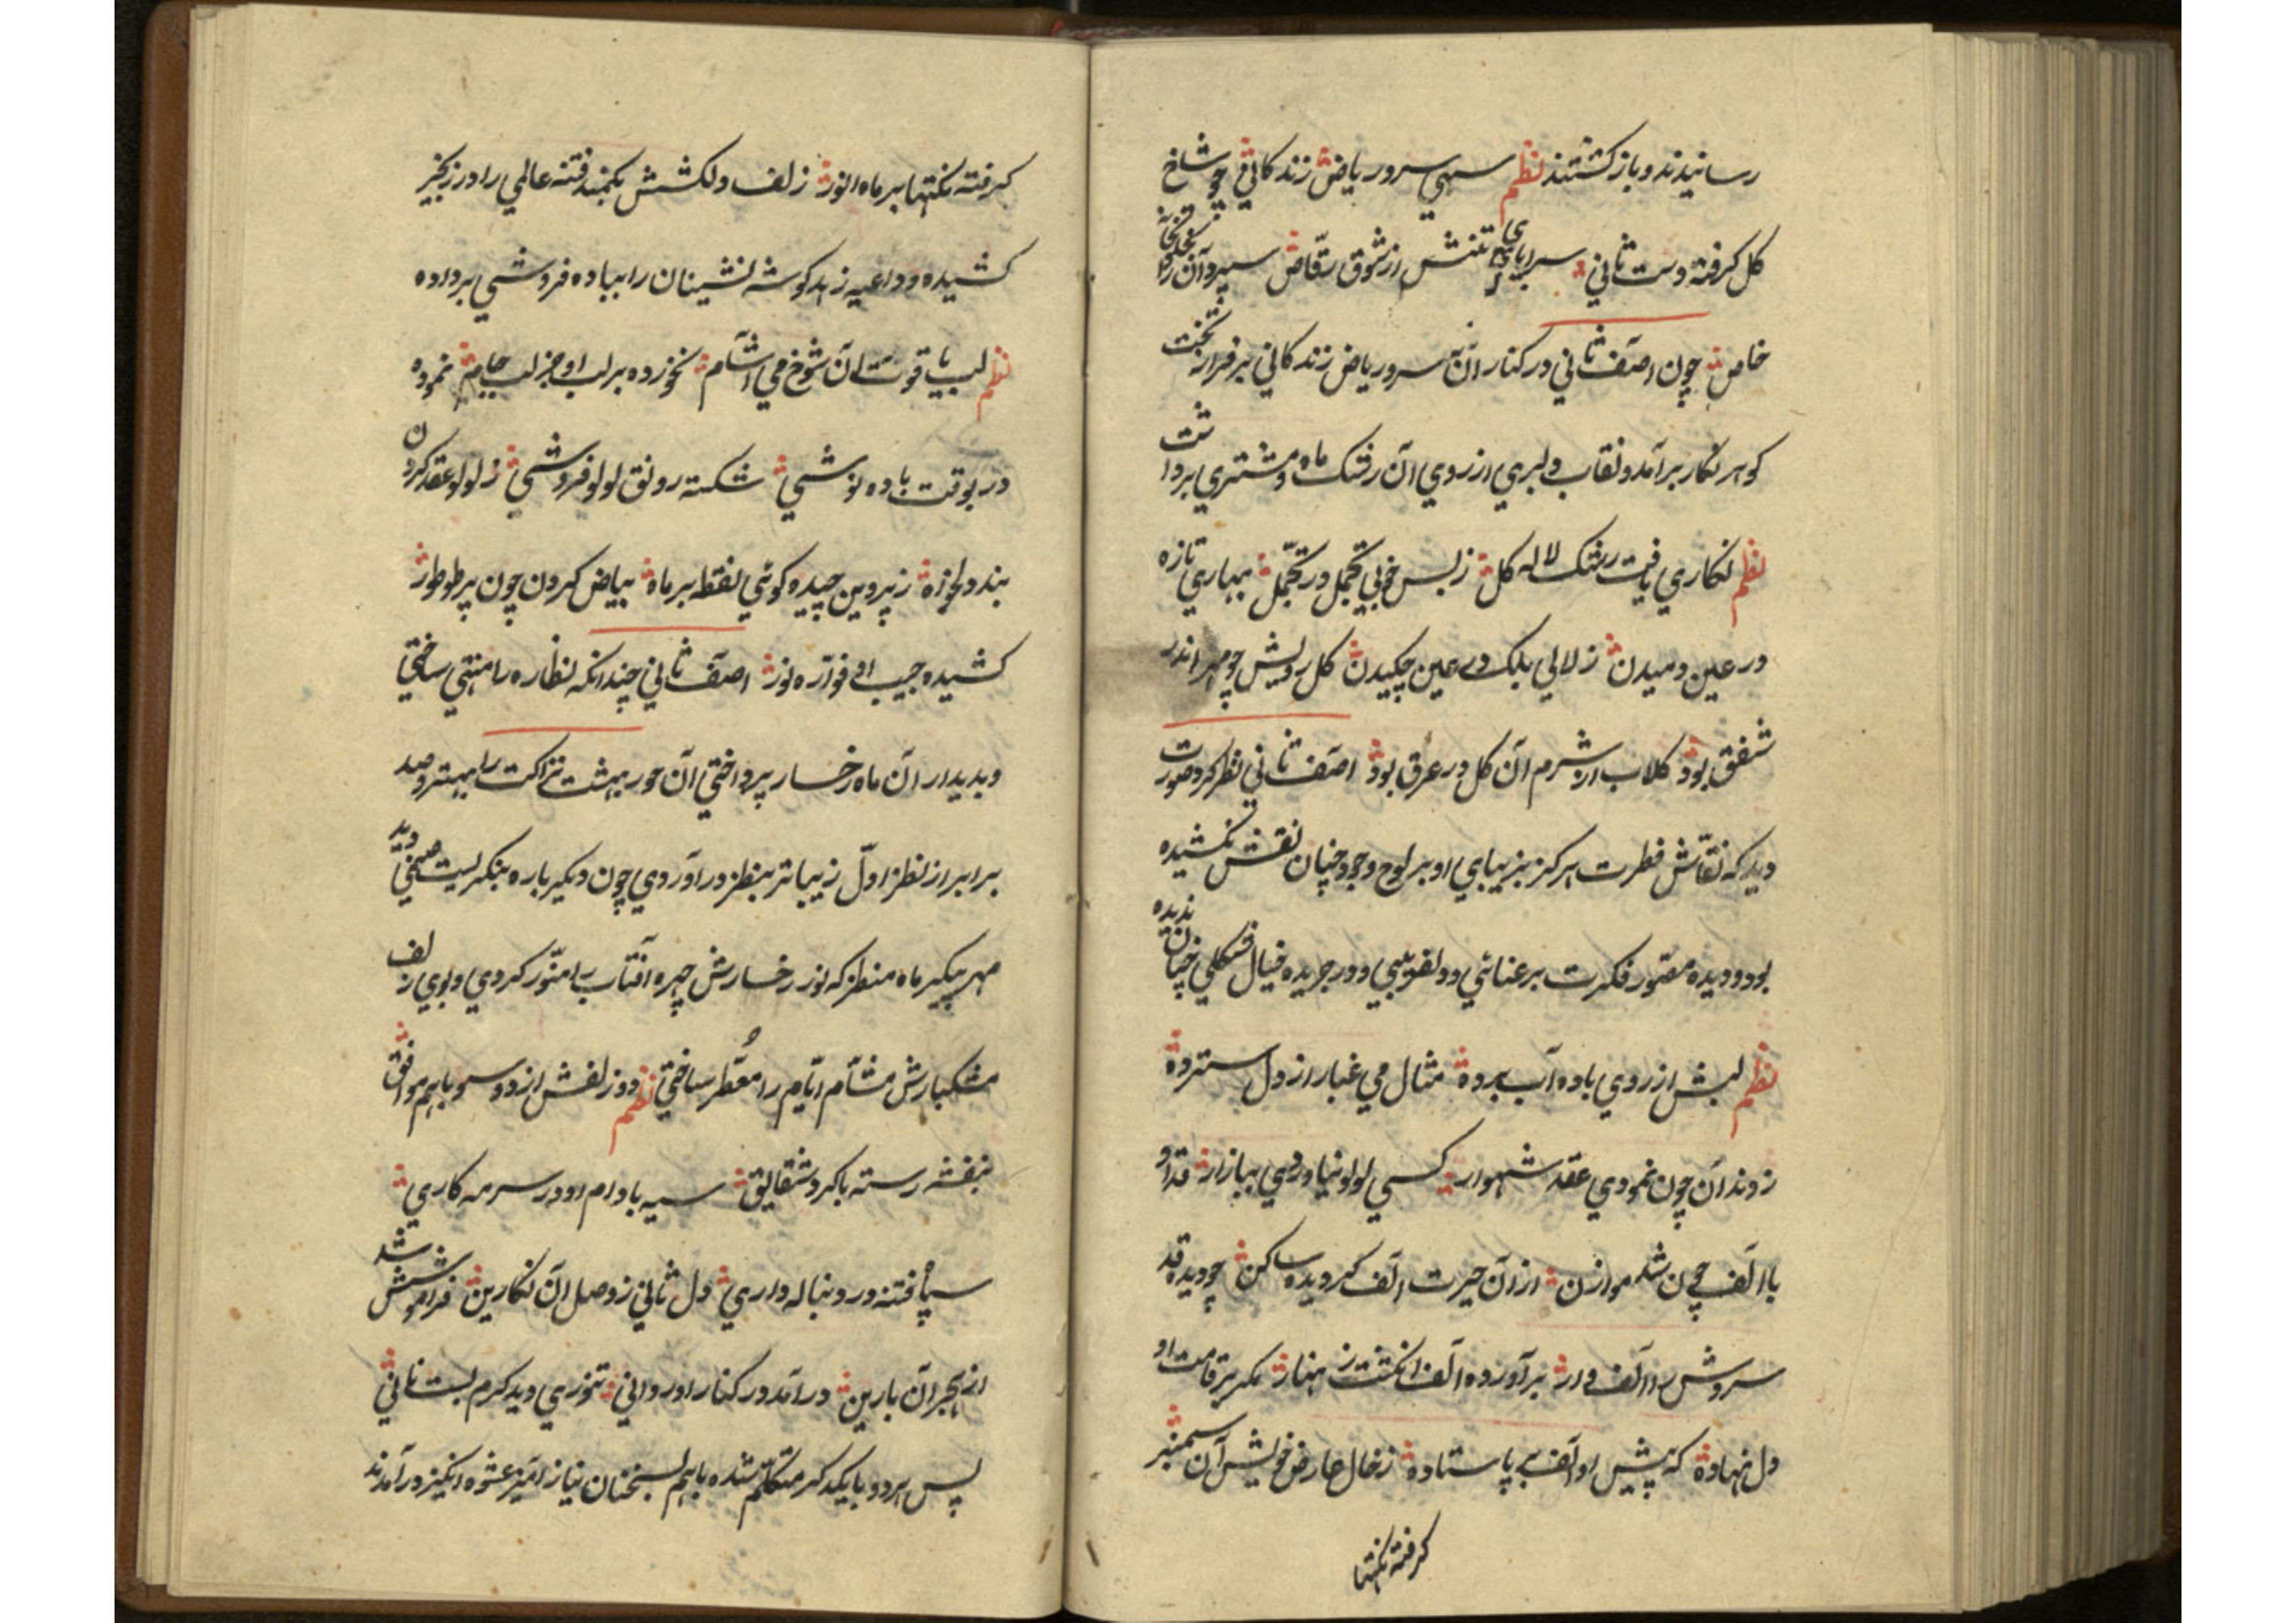 رسانیدند و باز کشتند نظم سهی سرو ریاض زندکانی چو شاخ
کل کرفته دست ثانی سراپای تنش از شوق رقاص سپرد آن را بخلوتخانه
خاص چون اصف ثانی در کنار آن سرو ریاض زندکانی بر فراز تخت
کوهر نکار برآمد و نقاب دلبری از روی آن رشک ماه و مشتری برداشت
نظم نکاری یافت رشک لاله کل ز بس خوبی تجمل در تجمل بهاری تازه
در عین دمیدن زلالی بلک در عین چکیدن کل رویش چو مهر اندر
شفق بود کلاب از شرم آن کل در عرق بود اصف ثانی نظر کرد صورت
دید که نقاش فطرت هرکز بزیبایی او بر لوح وجود چنان نقش نکشیده
بود و دیده مصور فکرت برعنائی و دلفریبی او در جریده خیال شکلی چنان ندیده
نظم لبش از روی باده آب برده مثال می غبار از دل سترده
ز دندان چون نمودی عقد شهوار کسی لولو نیاوردی ببازار قد او
با الف چون شد موازن از آن حیرت الف کردیده ساکن چو دیده قد
سروش را الف وار برآورده الف انکشت زنهار مکر بر قامت او
دل نهاده که پیش او الف بر پا ستاده ز خال عارض خویش آن سمنبر
کرفته نکتها
کرفته نکتها بر ماه انور زلف دلکشش بکمند فتنه عالمی را در زنجیر
کشیده و داعیه زهد کوشه نشینان را بباده فروشی برداده
نظم لب یاقوت آن شوخ می آشام نخورده بر لب او جز لب جام نموده
در بوقت باده نوشی شکسته رونق لولو فروشی ز لولو عقد کردن
بند دلخواه ز پروین چیده کوئی نقطه بر ماه بیاض کردن چون پر طوطور
کشیده جیب او فواره نور اصف ثانی چندانکه نظاره را منتهی ساختی
و بدیدار آن ماه رخسار پرداختی آن حور بهشت نزاکت را بهتر و صد
برابر از نظر اول زیباتر بنظر درآوردی چون دیکر باره بنکریست صنمی دید
مهر پیکر ماه منظر که نور رخسارش چهره آفتاب را منور کردی و بوی زلف
مشکبارش مشام ایام را معطر ساختی نظم دو زلفش از دو سو با هم موافق
بنفشه رسته با کرد شقایق سیه بادام او در سرمه کاری
سپاه فتنه در دنباله داری دل ثانی ز وصل آن نکارین فراموشش شد
از هجران بارین درآمد در کنار او روانی تنوری دید کرم بست نانی
پس هر دو با یکدکر متکلم شده با هم بسخنان نیاز آمیز عشوه انکیز درآمدند